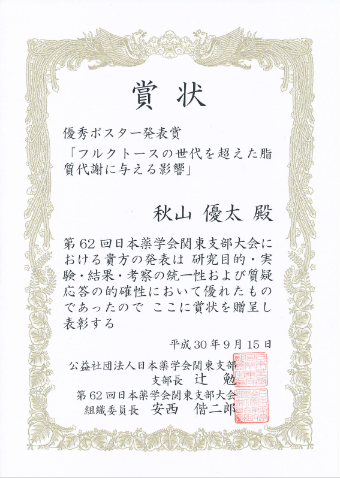 賞状
優秀ポスター発表賞
「フルクトースの世代を超えた脂
質代謝に与える影響」
秋山 優太 殿
第62回日本薬学会関東支部大会に
おける貴方の発表は 研究目的・実
験・結果・考察の統一性および質疑
応答の的確性において優れたもの
であったので ここに賞状を贈呈し
表彰する
平成30年9月15日
公益社団法人日本薬学会関東支部
支部長 辻 勉
第62回日本薬学会関東支部大会
組織委員長 安西 偕二郎